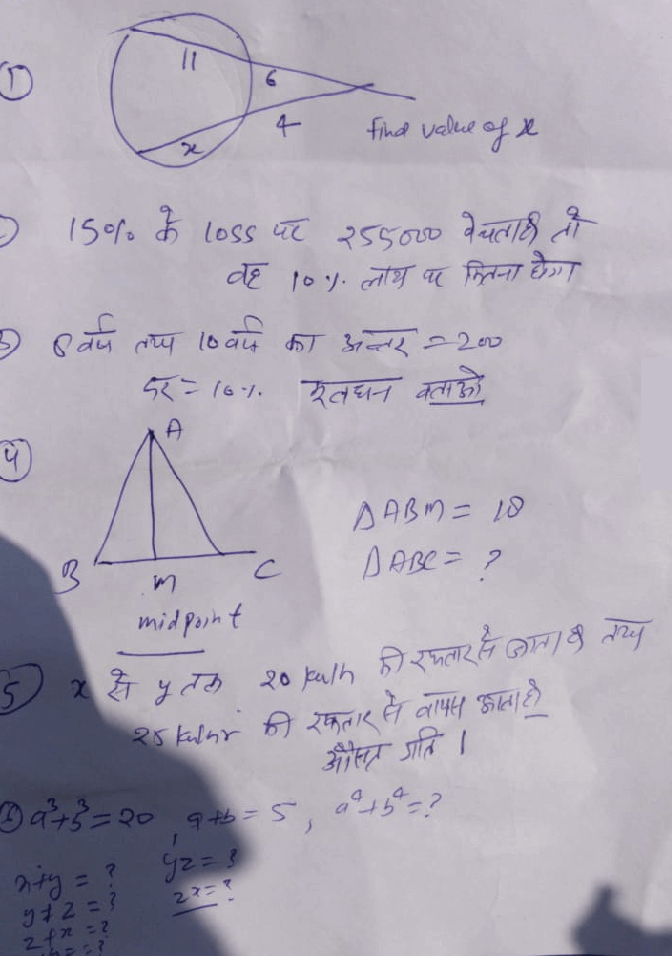 ①
11
6
4
x
find value of x
15% के loss पर 255000 बेचता है तो
वह 10%. लाभ पर कितना होगा
8 वर्ष तथा 10 वर्ष का अन्तर = 200
दर = 10%. मूलधन बताओ
④
A
B
M
C
midpoint
ΔABM = 18
ΔABC = ?
⑤ x से y तक 20 km/h की रफ्तार से जाता है तथा
25 km/hr की रफ्तार से वापस आता है
औसत गति ।
a³+b³=20, a+b=5, a⁴+b⁴=?
x+y = ?
yz = ?
y+z = ?
zx = ?
z+x = ?